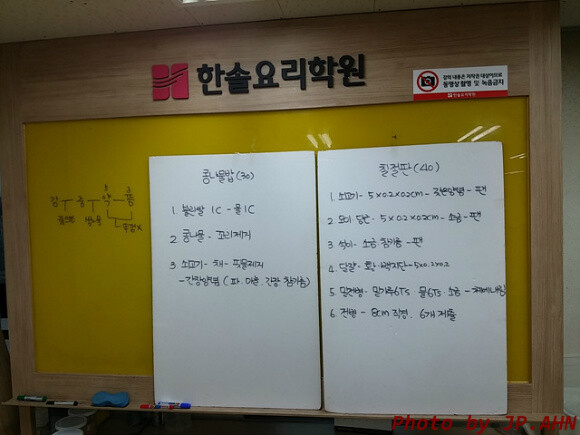 한솔요리학원
강의 내용은 저작권 대상이므로
동영상 촬영 및 녹음금지
한솔요리학원
콩나물밥 (30)
1. 불린쌀 1C - 물 1C
2. 콩나물 - 꼬리제거
3. 소고기 - 채 - 핏물제거
- 간장양념 (파. 마늘. 간장. 참기름)
칠절판 (40)
1. 소고기 - 5×0.2×0.2cm - 팬
2. 오이 당근 - 5×0.2×0.2cm - 소금 - 팬
3. 석이 - 소금 참기름 - 팬
4. 달걀 - 황·백지단 - 5×0.2×0.2
5. 밀전병 - 밀가루 6Ts 물 6Ts. 소금 -
6. 전병 - 8cm 직경. 6개 제출
Photo by JP.AHN